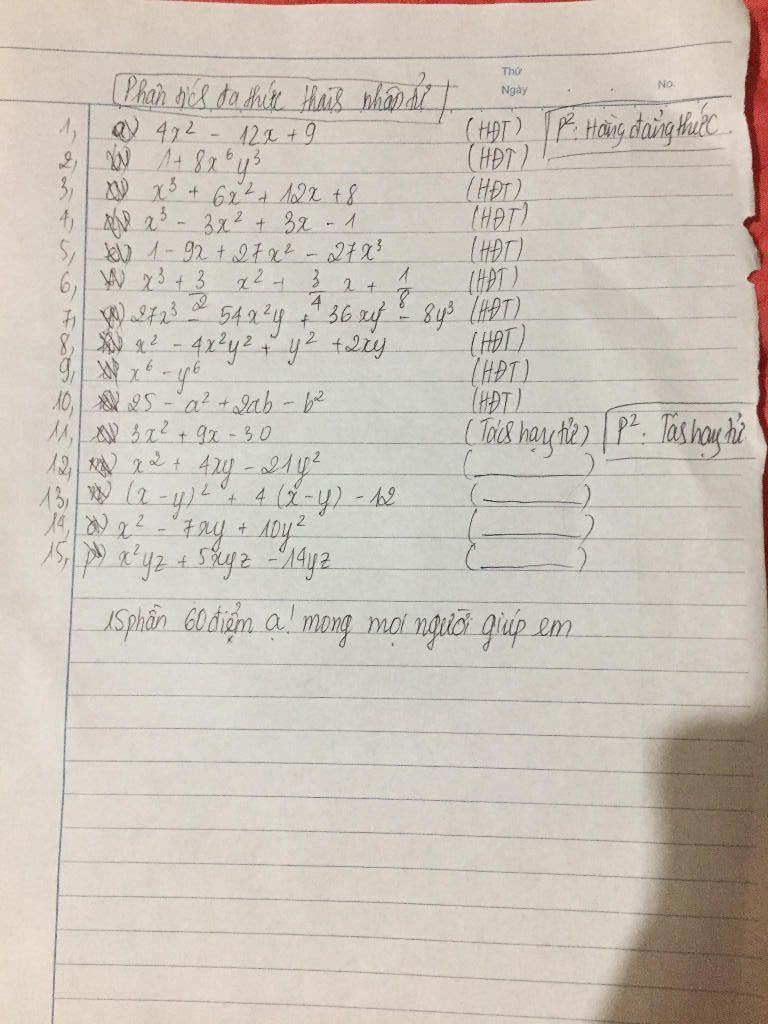 Thứ
Ngày . . No.
Phân tích đa thức thành nhân tử
1, a) 4x² - 12x + 9 (HĐT) P²: Hằng đẳng thức
2, b) 1 + 8x⁶y³ (HĐT)
3, x³ + 6x² + 12x + 8 (HĐT)
4, x³ - 3x² + 3x - 1 (HĐT)
5, 1 - 9x + 27x² - 27x³ (HĐT)
6, x³ + 3/2 x² + 3/4 x + 1/8 (HĐT)
7, 27x³ - 54x²y + 36xy² - 8y³ (HĐT)
8, x² - 4x²y² + y² + 2xy (HĐT)
9, x⁶ - y⁶ (HĐT)
10, 25 - a² + 2ab - b² (HĐT)
11, 3x² + 9x - 30 (Tách hạng tử) P²: Tách hạng tử
12, x² + 4xy - 21y² (______)
13, (x - y)² + 4(x - y) - 12 (______)
14, x² - 7xy + 10y² (______)
15, p) x²yz + 5xyz - 14yz (______)
15 phần 60 điểm ạ! mong mọi người giúp em